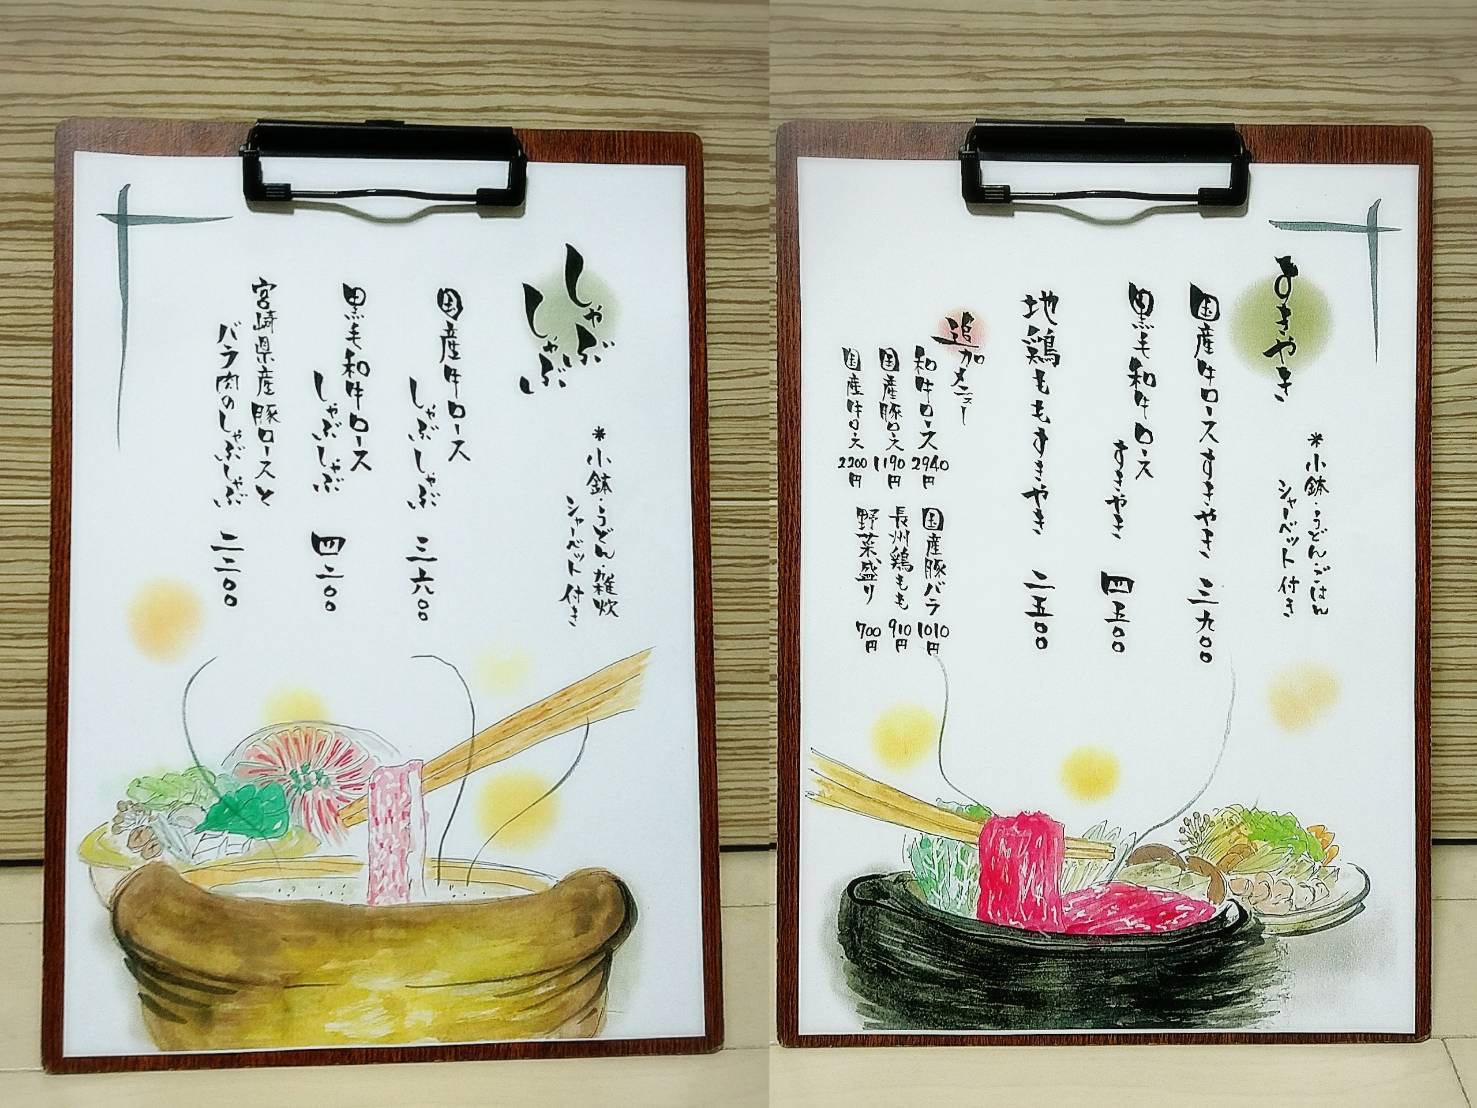 しゃぶ
しゃぶ
*小鉢・うどん・雑炊
シャーベット付き
国産牛ロース
しゃぶしゃぶ 三六〇〇
黒毛和牛ロース
しゃぶしゃぶ 四二〇〇
宮崎県産豚ロースと
バラ肉のしゃぶしゃぶ 二二〇〇
すきやき
*小鉢・うどん・ごはん
シャーベット付き
国産牛ロースすきやき 三九〇〇
黒毛和牛ロース
すきやき 四五〇〇
地鶏ももすきやき 二五〇〇
追加メニュー
和牛ロース 2940円
国産豚ロース 1190円
国産牛ロース 2200円
国産豚バラ 1010円
長州鶏もも 910円
野菜盛り 700円